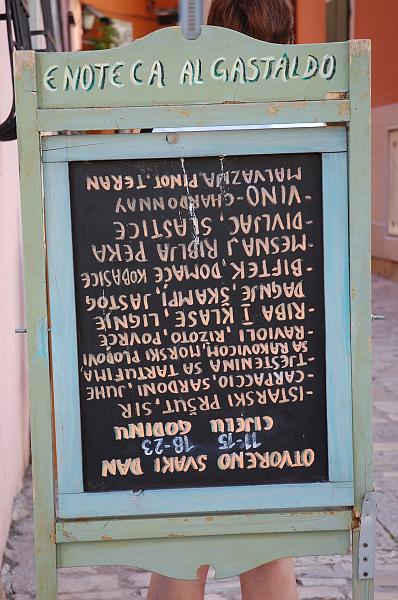 ENOTECA AL GASTALDO
OTVORENO SVAKI DAN
11-15 18-23
CIJELU GODINU
-ISTARSKI PRŠUT, SIR
-CARPACCIO, SARDONI, JUHE
-TJESTENINA SA TARTUFIMA,
SA RAKOVICOM, MORSKI PLODOVI
-RAVIOLI, RIŽOTO, POVRĆE
-RIBA I KLASE, LIGNJE
DAGNJE, ŠKAMPI, JASTOG
-BIFTEK, DOMAĆE KOBASICE
MESNA, RIBLJA PEKA
-DIVLJAČ, SLASTICE
-VINO-CHARDONNAY
MALVAZIJA, PINOT, TERAN